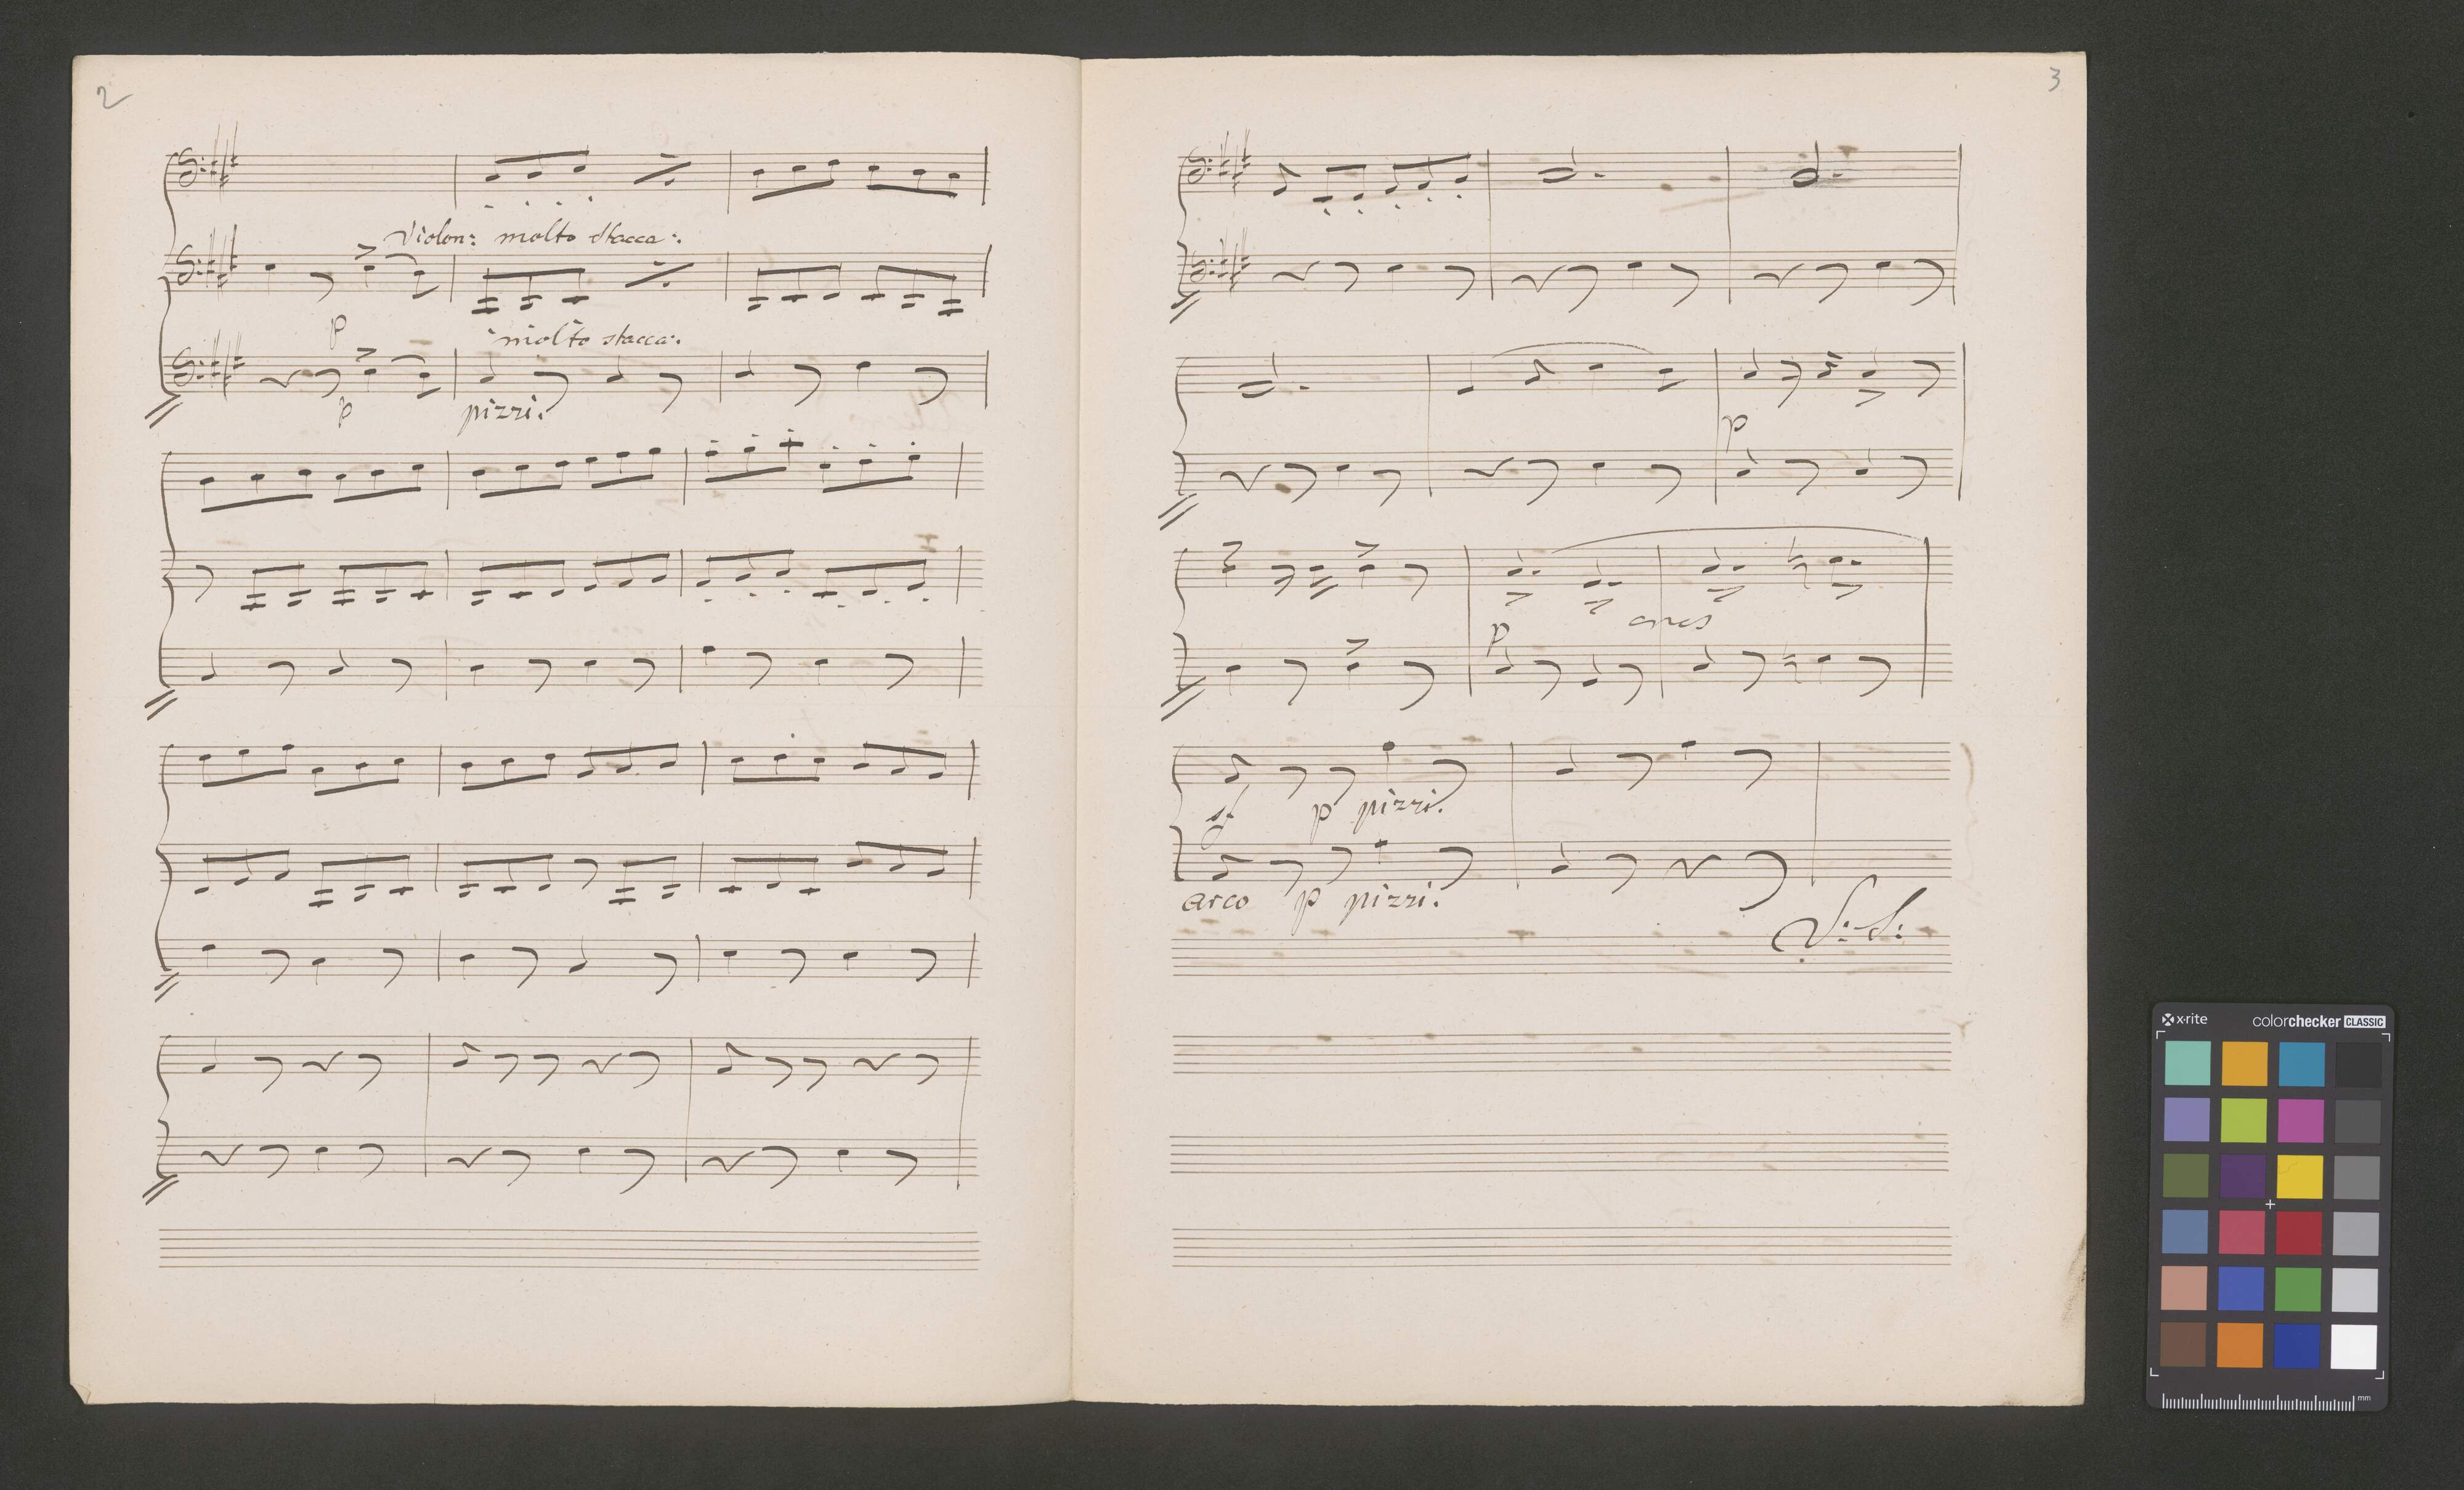 2
Violon: molto stacca:.
p
molto stacca:.
p pizzi.
3
p
p cres
sf p pizzi.
arco p pizzi.
V: S:
x-rite colorchecker CLASSIC
mm